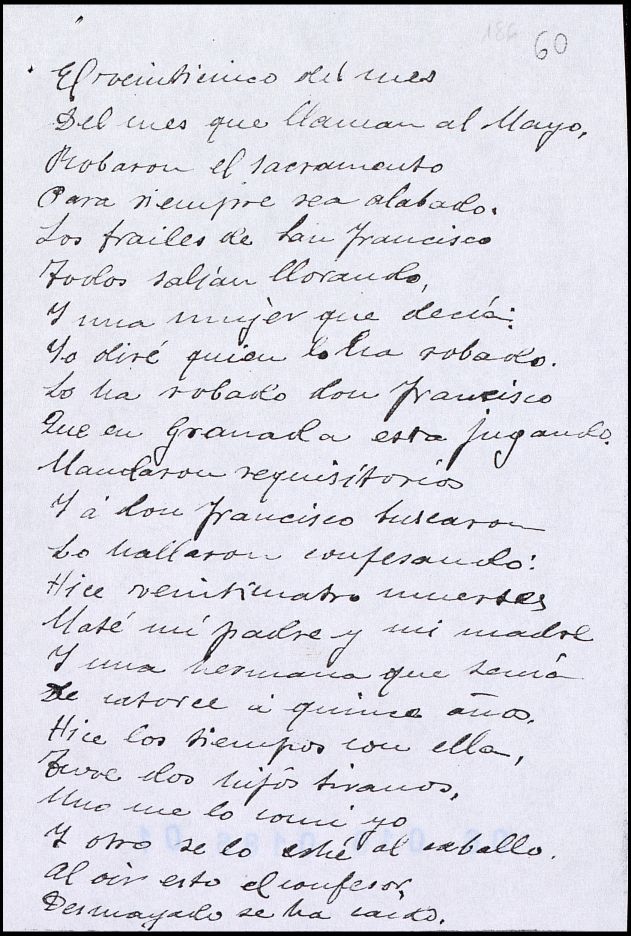 186
60
El veinticinco del mes
Del mes que llaman al Mayo,
Robaron el sacramento
Para siempre sea alabado.
Los frailes de San Francisco
Todos salían llorando,
Y una mujer que decía:
Yo diré quien lo ha robado.
Lo ha robado don Francisco
Que en Granada esta jugando.
Mandaron requisitorios
Y á don Francisco buscaron
Lo hallaron confesando:
Hice veinticuatro muertes
Maté mi padre y mi madre
Y una hermana que tenía
De catorce á quince años,
Hice los tiempos con ella,
Tuve dos hijos tiranos,
Uno me lo comí yo
Y otro se lo eché al caballo.
Al oir esto el confesor,
Desmayado se ha caido.